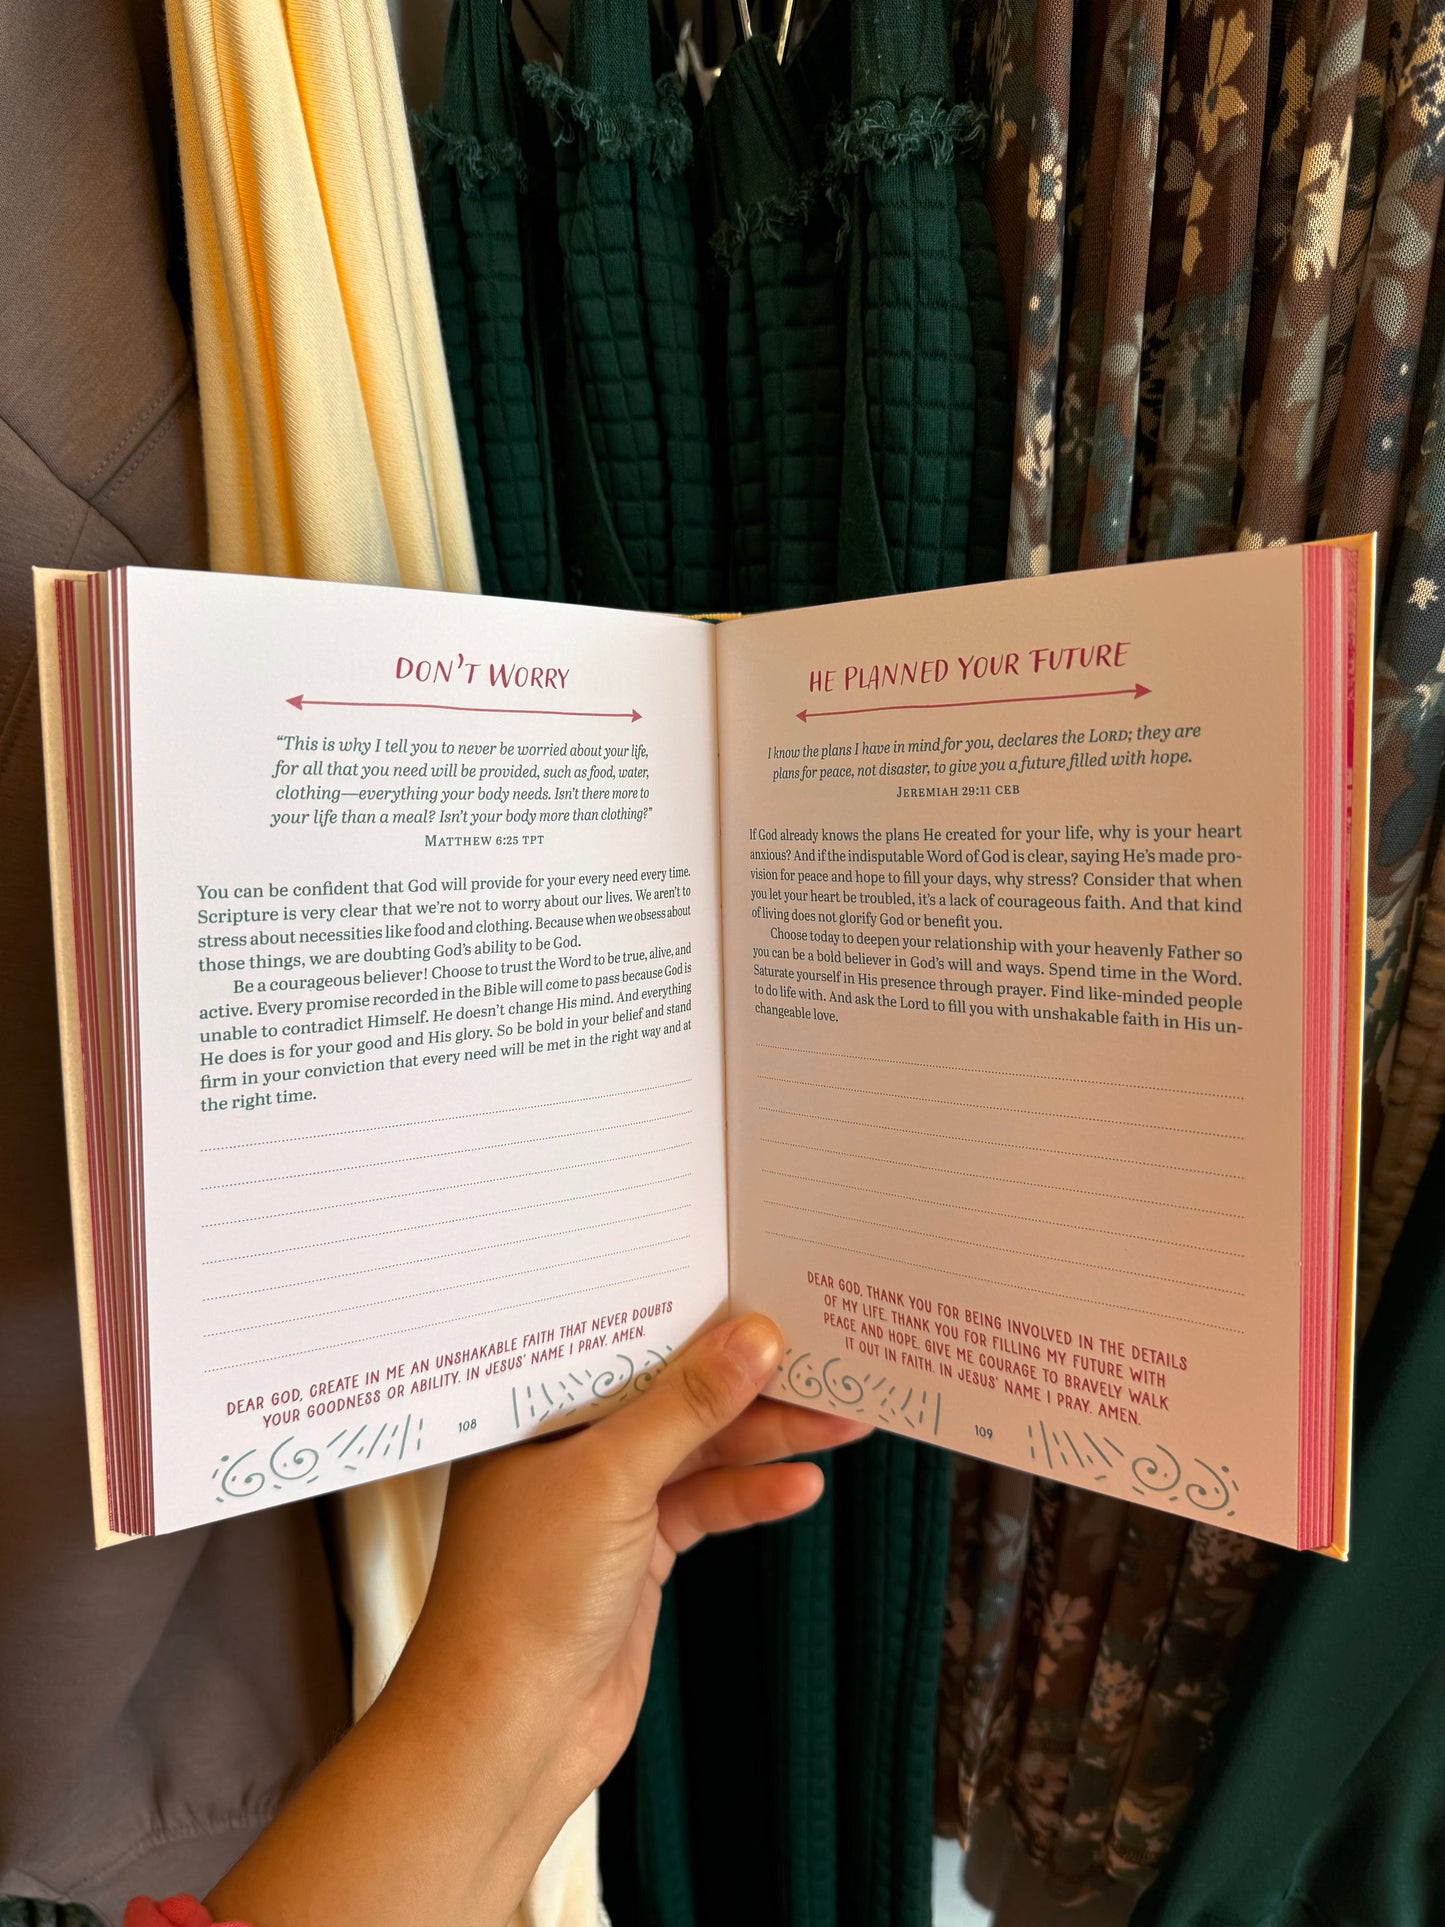 DON'T WORRY
“This is why I tell you to never be worried about your life,
for all that you need will be provided, such as food, water,
clothing—everything your body needs. Isn't there more to
your life than a meal? Isn't your body more than clothing?”
MATTHEW 6:25 TPT
You can be confident that God will provide for your every need every time.
Scripture is very clear that we're not to worry about our lives. We aren't to
stress about necessities like food and clothing. Because when we obsess about
those things, we are doubting God's ability to be God.
Be a courageous believer! Choose to trust the Word to be true, alive, and
active. Every promise recorded in the Bible will come to pass because God is
unable to contradict Himself. He doesn't change His mind. And everything
He does is for your good and His glory. So be bold in your belief and stand
firm in your conviction that every need will be met in the right way and at
the right time.
DEAR GOD, CREATE IN ME AN UNSHAKABLE FAITH THAT NEVER DOUBTS
YOUR GOODNESS OR ABILITY. IN JESUS' NAME I PRAY. AMEN.
108
HE PLANNED YOUR FUTURE
I know the plans I have in mind for you, declares the LORD; they are
plans for peace, not disaster, to give you a future filled with hope.
JEREMIAH 29:11 CEB
If God already knows the plans He created for your life, why is your heart
anxious? And if the indisputable Word of God is clear, saying He's made pro-
vision for peace and hope to fill your days, why stress? Consider that when
you let your heart be troubled, it's a lack of courageous faith. And that kind
of living does not glorify God or benefit you.
Choose today to deepen your relationship with your heavenly Father so
you can be a bold believer in God's will and ways. Spend time in the Word.
Saturate yourself in His presence through prayer. Find like-minded people
to do life with. And ask the Lord to fill you with unshakable faith in His un-
changeable love.
DEAR GOD, THANK YOU FOR BEING INVOLVED IN THE DETAILS
OF MY LIFE. THANK YOU FOR FILLING MY FUTURE WITH
PEACE AND HOPE. GIVE ME COURAGE TO BRAVELY WALK
IT OUT IN FAITH. IN JESUS' NAME I PRAY. AMEN.
109